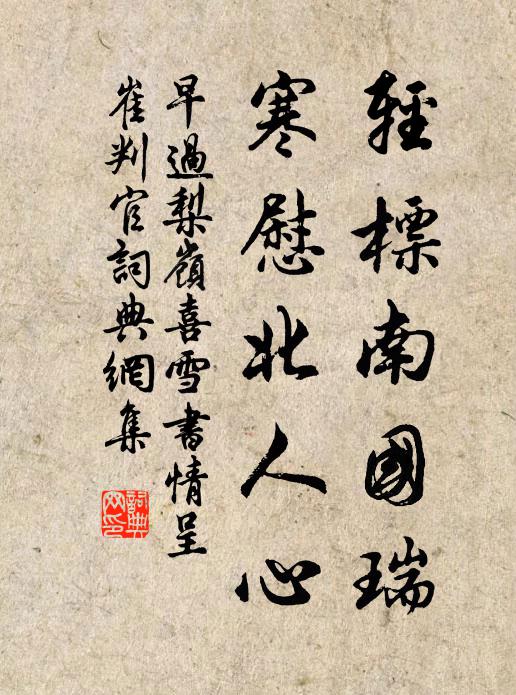 輕標南國瑞
寒慰北人心
早過梨嶺喜雪書情呈
崔判官詞典網集
詞典
网印